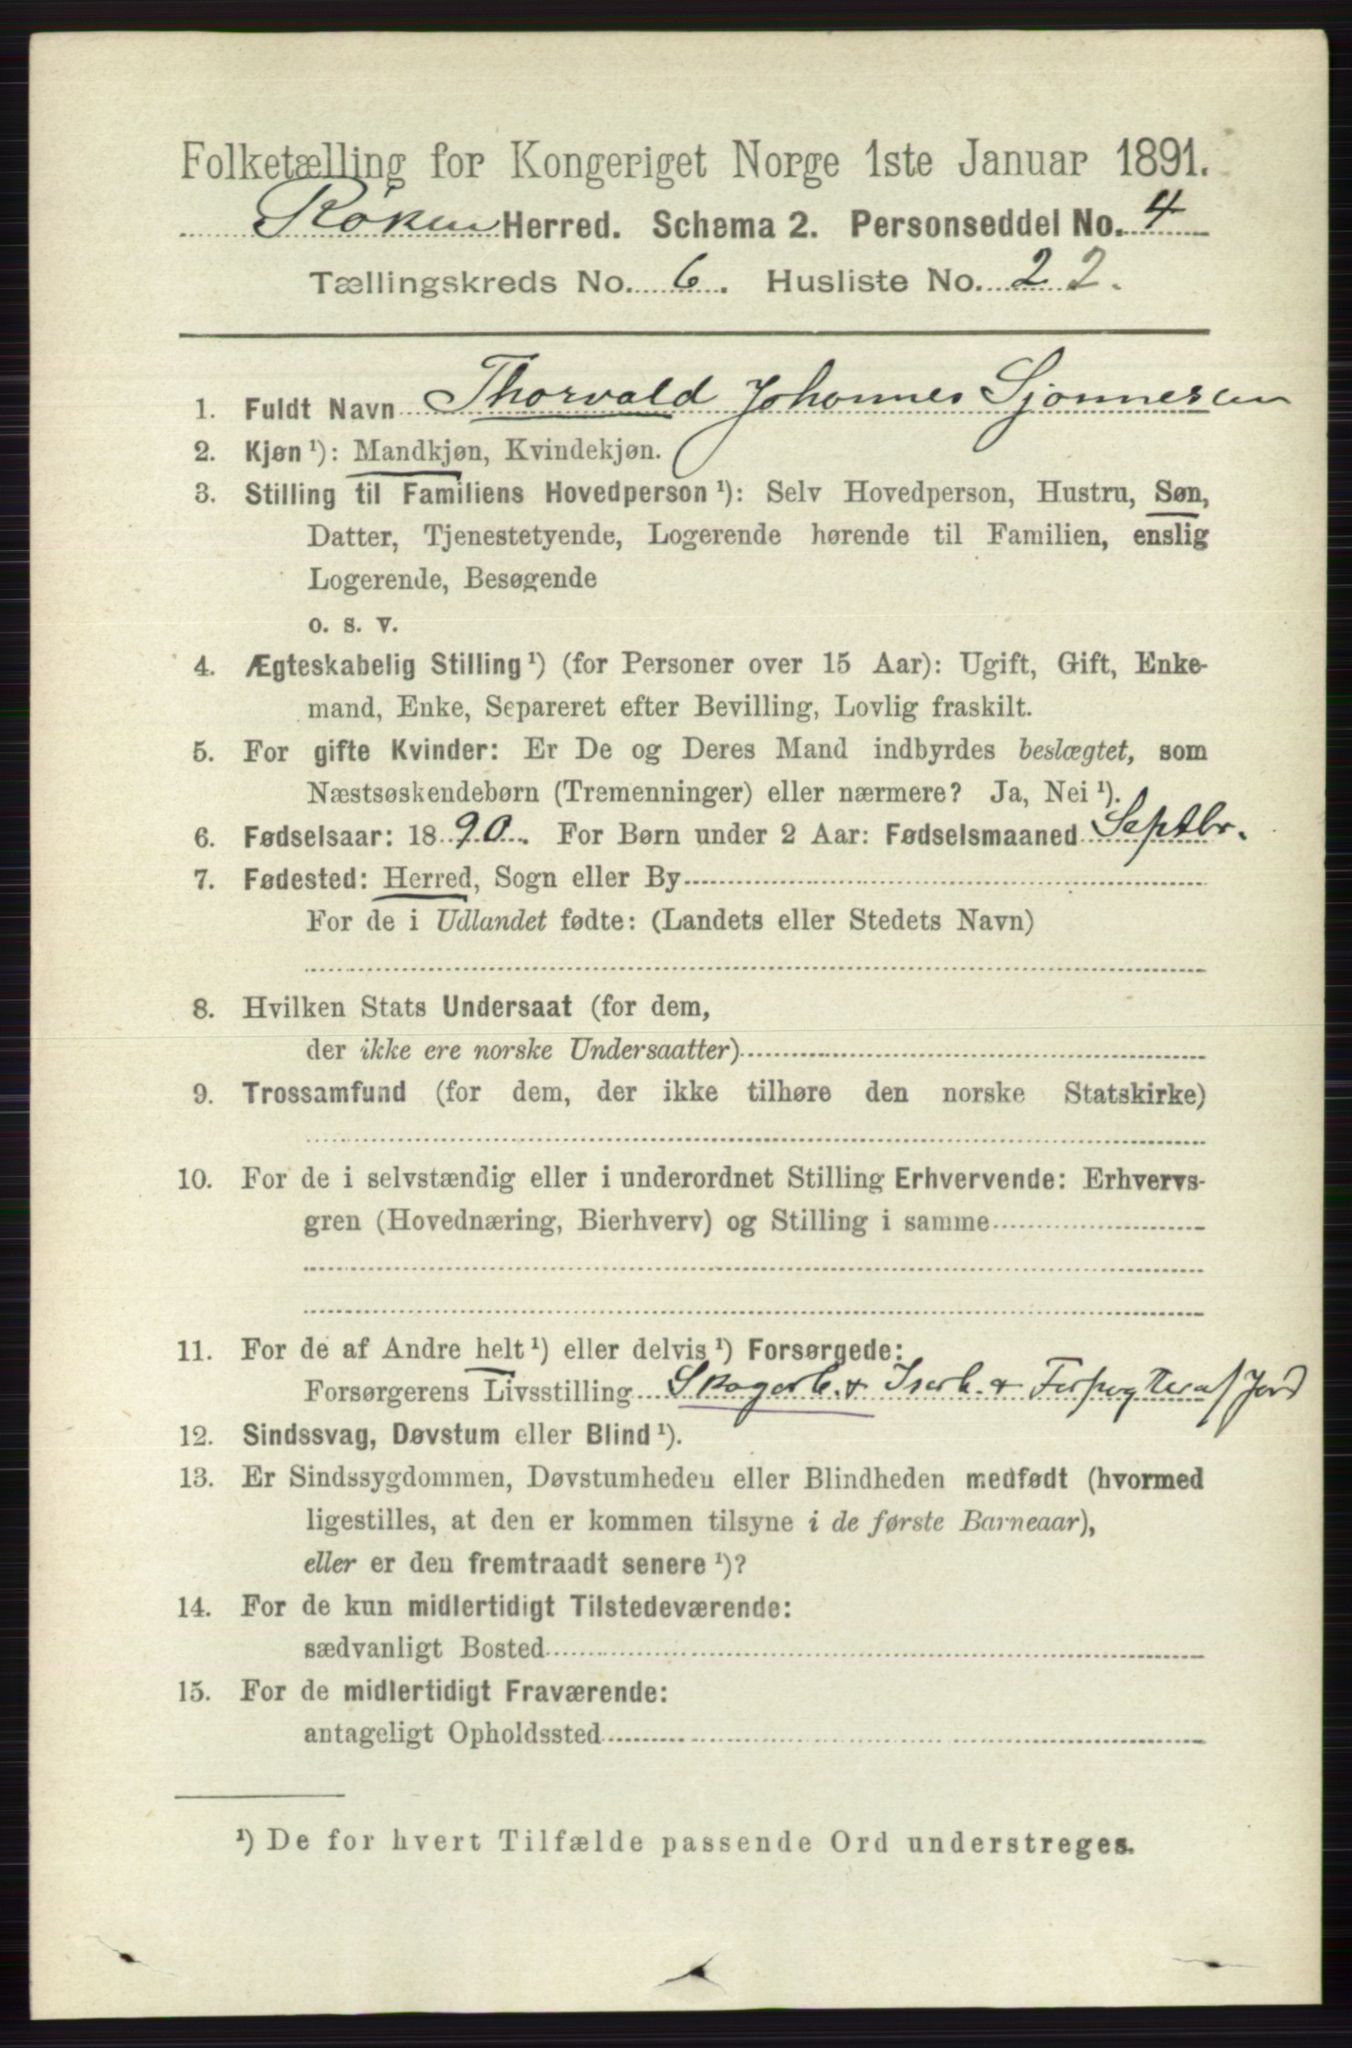 Folketælling for Kongeriget Norge 1ste Januar 1891.
Røken Herred. Schema 2. Personseddel No. 4
Tællingskreds No. 6. Husliste No. 22.
1. Fuldt Navn Thorvald Johannes
2. Kjøn ¹): Mandkjøn, Kvindekjøn.
3. Stilling til Familiens Hovedperson ¹): Selv Hovedperson, Hustru, Søn,
Datter, Tjenestetyende, Logerende hørende til Familien, enslig
Logerende, Besøgende
o. s. v.
4. Ægteskabelig Stilling ¹) (for Personer over 15 Aar): Ugift, Gift, Enke-
mand, Enke, Separeret efter Bevilling, Lovlig fraskilt.
5. For gifte Kvinder: Er De og Deres Mand indbyrdes beslægtet, som
Næstsøskendebørn (Tremenninger) eller nærmere? Ja, Nei ¹).
6. Fødselsaar: 1890. For Børn under 2 Aar: Fødselsmaaned Septbr.
7. Fødested: Herred, Sogn eller By
For de i Udlandet fødte: (Landets eller Stedets Navn)
8. Hvilken Stats Undersaat (for dem,
der ikke ere norske Undersaatter)
9. Trossamfund (for dem, der ikke tilhøre den norske Statskirke)
10. For de i selvstændig eller i underordnet Stilling Erhvervende: Erhvervs-
gren (Hovednæring, Bierhverv) og Stilling i samme
11. For de af Andre helt ¹) eller delvis ¹) Forsørgede:
Forsørgerens Livsstilling Skogarb. + Isarb. + Forpagter af Jord
12. Sindssvag, Døvstum eller Blind ¹).
13. Er Sindssygdommen, Døvstumheden eller Blindheden medfødt (hvormed
ligestilles, at den er kommen tilsyne i de første Barneaar),
eller er den fremtraadt senere ¹)?
14. For de kun midlertidigt Tilstedeværende:
sædvanligt Bosted
15. For de midlertidigt Fraværende:
antageligt Opholdssted
¹) De for hvert Tilfælde passende Ord understreges.